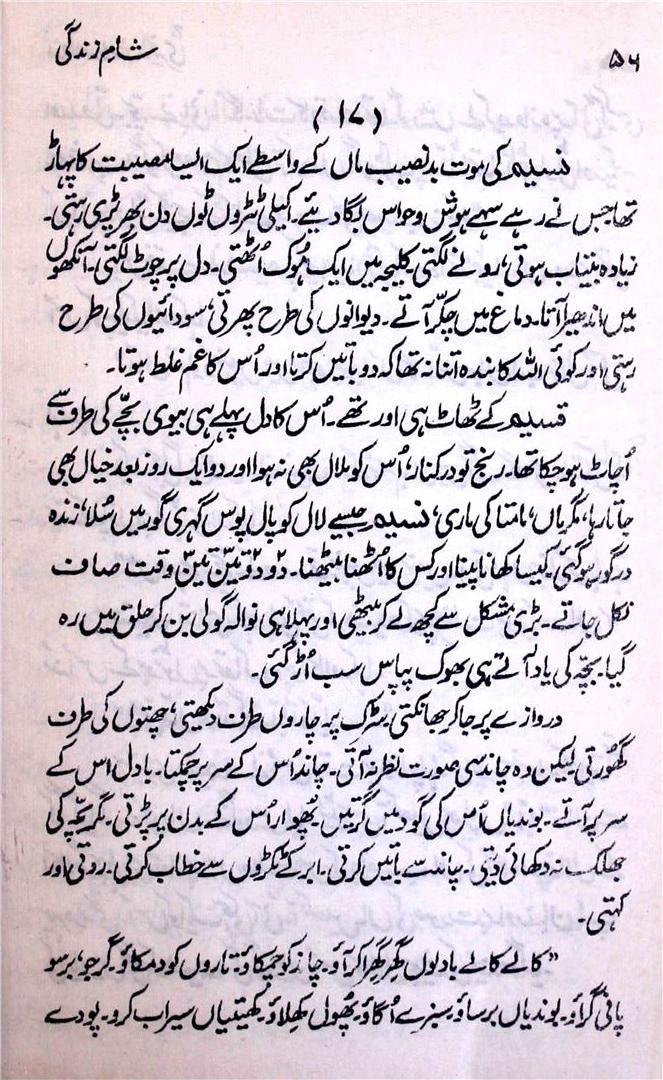 ۵۶
شامِ زندگی
(۱۷)
نسیم کی موت بدنصیب ماں کے واسطے ایک ایسا مصیبت کا پہاڑ
تھا جس نے رہے سہے ہوش و حواس بگا دیئے۔ اکیلی ٹٹروں ٹوں دن بھر پڑی رہتی۔
زیادہ بیتاب ہوتی، رونے لگتی۔ کلیجہ میں ایک ہُوک اُٹھتی۔ دل پر چوٹ لگتی۔ آنکھوں
میں اندھیرا آتا۔ دماغ میں چکّر آتے۔ دیوانوں کی طرح پھرتی، سودائیوں کی طرح
رہتی اور کوئی اللہ کا بندہ اتنا نہ تھا کہ دو باتیں کرتا اور اُس کا غم غلط ہوتا۔
قسیم کے ٹھاٹ ہی اور تھے۔ اُس کا دل پہلے ہی بیوی بچّے کی طرف سے
اُچاٹ ہو چکا تھا۔ رنج تو درکنار، اُس کو ملال بھی نہ ہوا اور دو ایک روز بعد خیال بھی
جاتا رہا، مگر ماں، مامتا کی ماری، نسیم جیسے لال کو پال پوس گہری گور میں سُلا، زندہ
درگور ہو گئی۔ کیسا کھانا پینا اور کس کا اُٹھنا بیٹھنا۔ دو دو تین تین وقت صاف
نکل جاتے۔ بڑی مشکل سے کچھ لے کر بیٹھی اور پہلا ہی نوالہ گولی بن کر حلق میں رہ
گیا۔ بچّہ کی یاد آتے ہی بھوک پیاس سب اُڑ گئی۔
دروازے پر جا کر جھانکتی۔ سڑک پر چاروں طرف دیکھتی، چھتوں کی طرف
گھُورتی لیکن وہ چاند سی صورت نظر نہ آتی۔ چاند اُس کے سر پر چمکتا۔ بادل اس کے
سر پر آتے۔ بوندیاں اُس کی گود میں گرتیں۔ پھُوار اُس کے بدن پر پڑتی۔ مگر بچّہ کی
جھلک نہ دکھائی دیتی۔ چاند سے باتیں کرتی۔ ابر کے ٹکڑوں سے خطاب کرتی۔ روتی اور
کہتی۔
”کالے کالے بادلوں گھِر گھِر آؤ۔ چاند کو چمکاؤ، تاروں کو دمکاؤ۔ گرجو، برسو
پانی گراؤ۔ بوندیاں برساؤ۔ سبزے اُگاؤ۔ پھُول کھِلاؤ۔ کھیتیاں سیراب کرو۔ پودے